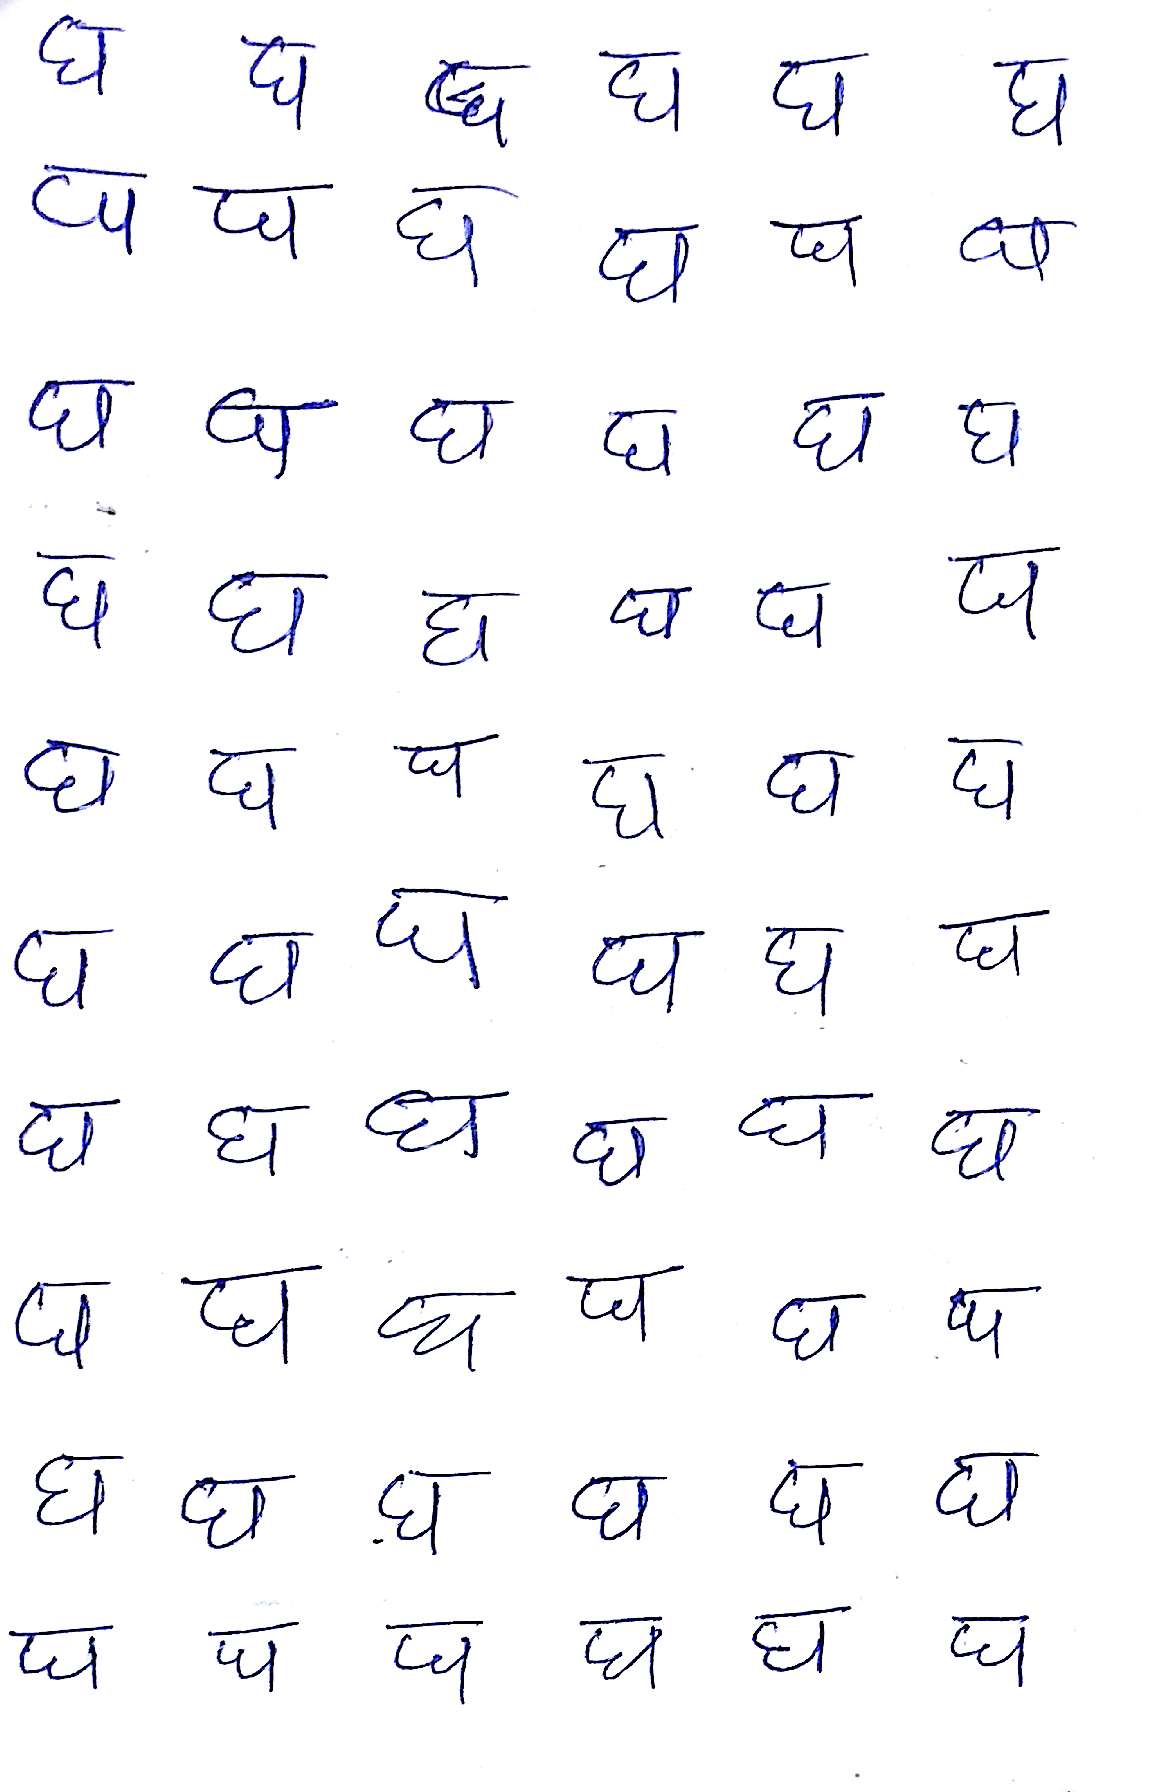 घ घ घ घ घ घ
घ घ घ घ घ घ
घ घ घ घ घ घ
घ घ घ घ घ घ
घ घ घ घ घ घ
घ घ घ घ घ घ
घ घ घ घ घ घ
घ घ घ घ घ घ
घ घ घ घ घ घ
घ घ घ घ घ घ